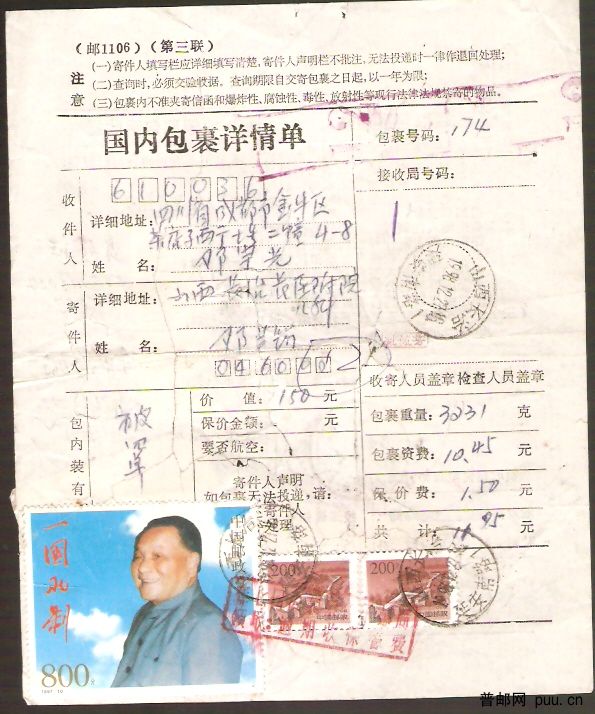 (邮1106)(第三联)
注意
(一)寄件人填写栏应详细填写清楚，寄件人声明栏不批注，无法投递时一律作退回处理；
(二)查询时，必须交验收据。查询期限自交寄包裹之日起，以一年为限；
(三)包裹内不准夹寄信函和爆炸性、腐蚀性、毒性、放射性等现行法律法规禁寄的物品。
国内包裹详情单
包裹号码：174
接收局号码：
收件人
610036
详细地址：四川省成都市金牛区
二幢 4-8
姓名：邓荣光
寄件人
详细地址：山西长治
姓名：邓
046000
收寄人员盖章 检查人员盖章
包内装有
被罩
价值：150元
保价金额：元
要否航空：
寄件人声明
如包裹无法投递，请：
寄件人
处理
包裹重量：3231克
包裹资费：10.45元
保价费：1.50元
共计：11.95元
山西长治
中国邮政
一国两制
800分
1997-10
200
中国邮政
200
中国邮政
逾期收保管费
普邮网 puu.cn